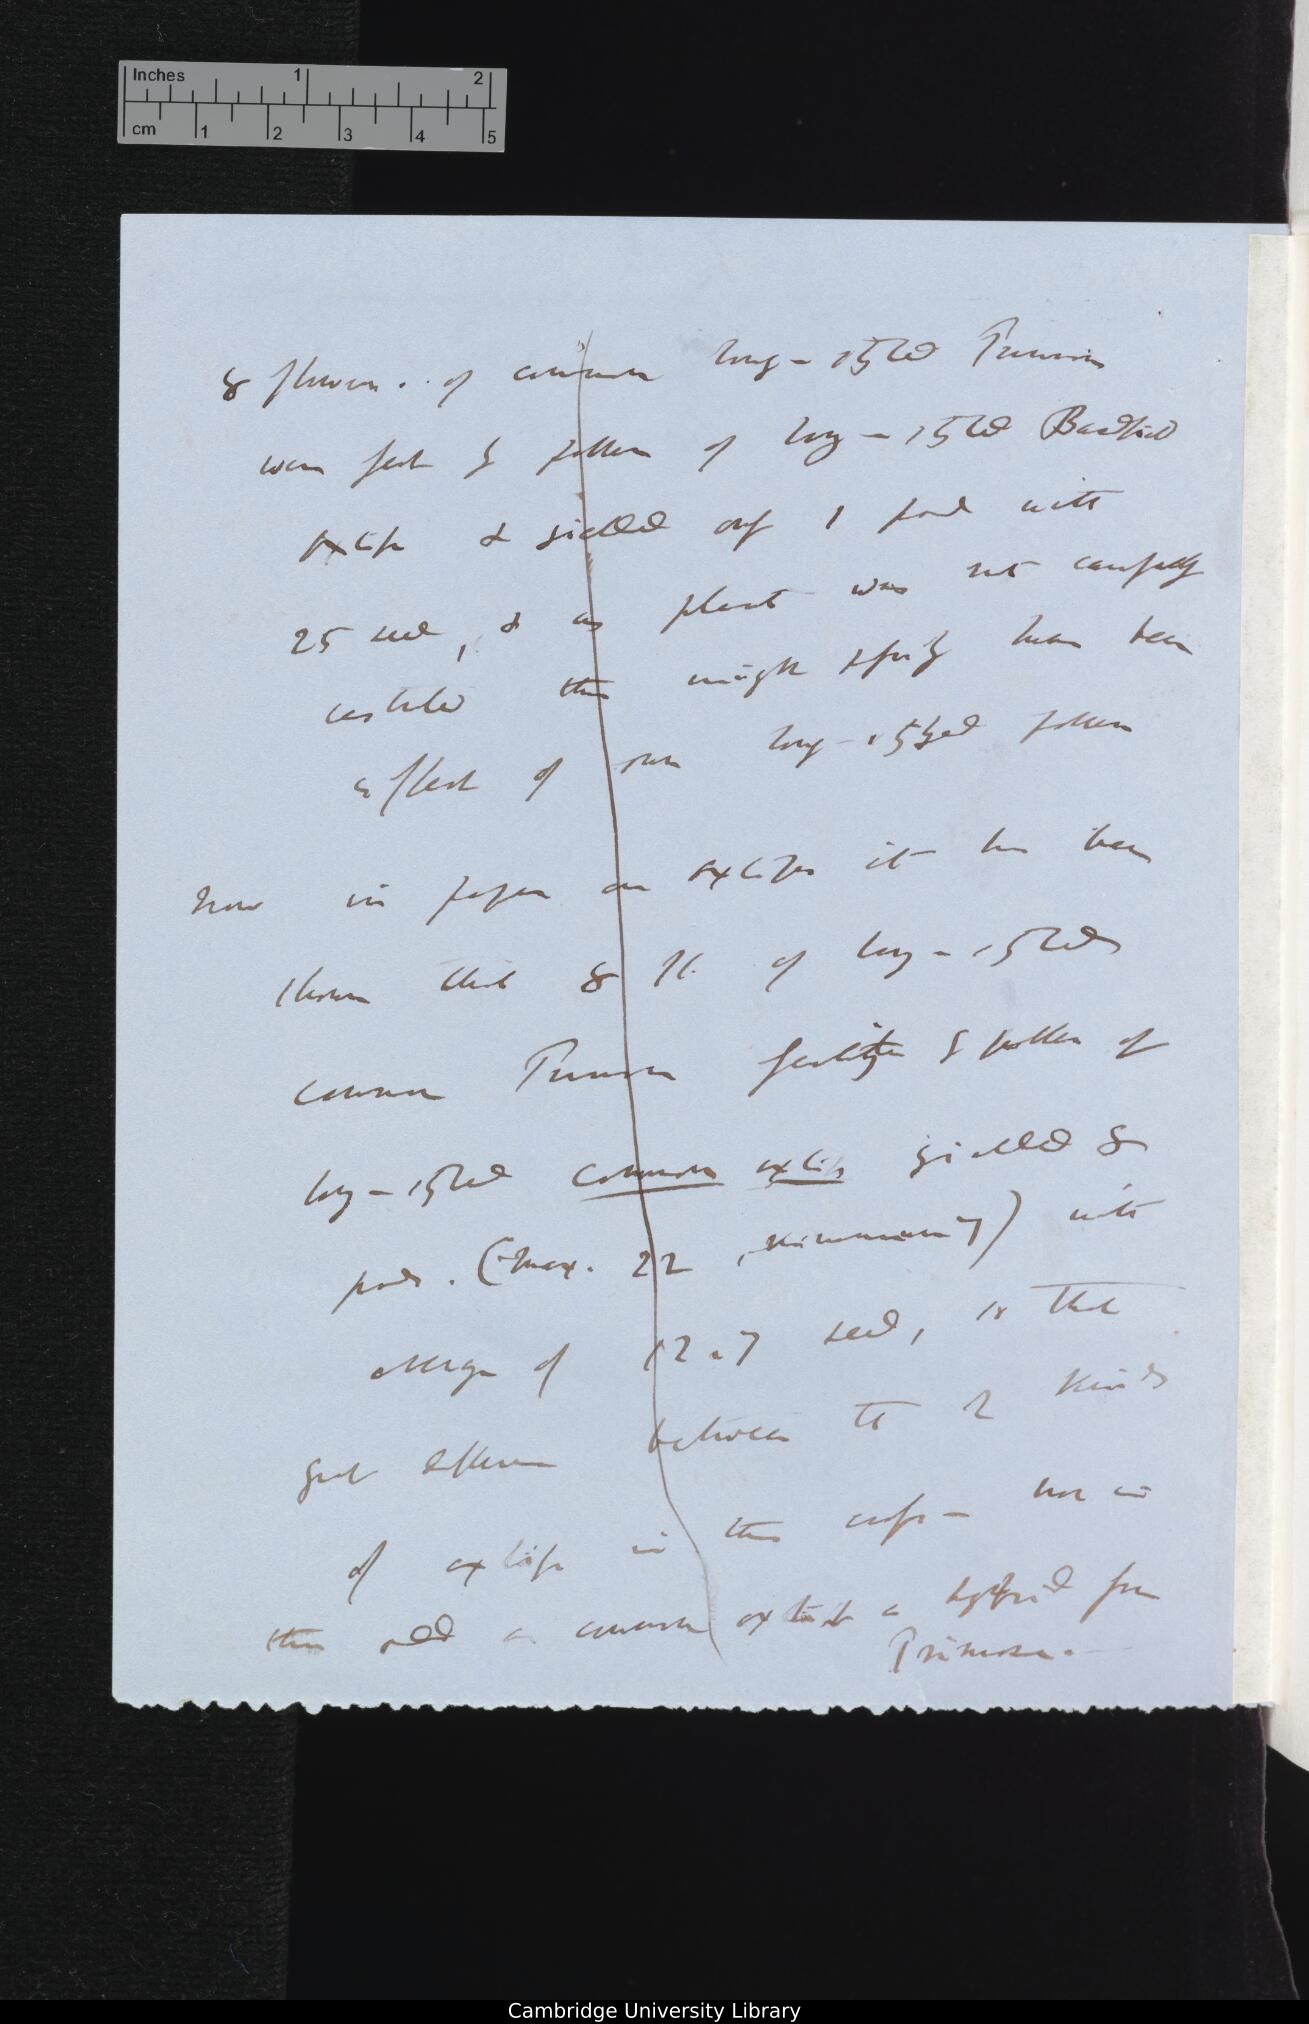 Inches 1 2
cm 1 2 3 4 5
8 flowers of common long-styled Primrose
were fert by pollen of long-styled Bardfield
oxlip & yielded only 1 pod with
25 seed, & as plant was not carefully
castrated this might have been
effect of own long-styled pollen
Now in paper on oxlips it has been
shown that 8 fl. of long-styled
common Primrose fertilized by pollen of
long-styled common oxlip yielded 8
pods. (max. 22, minimum 7) with
average of 12.7 seed, so that
great difference between the 2 kinds
of oxlip in this respect - nor is
this odd as common oxlip is a hybrid from
Primrose.
Cambridge University Library